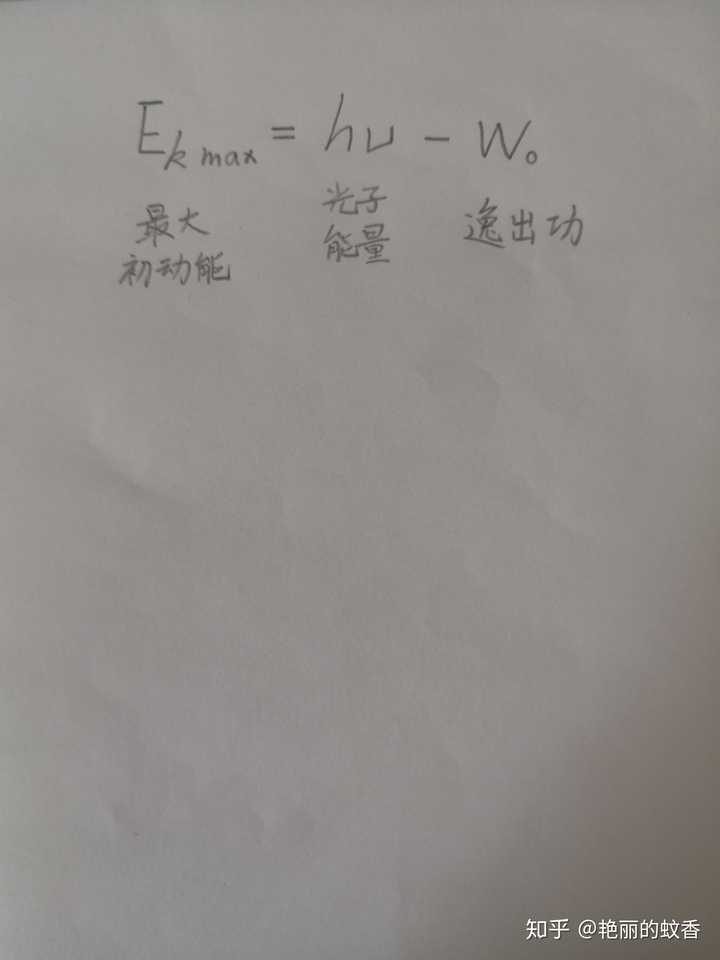 Ek max = hν - W₀
最大
初动能
光子
能量
逸出功
知乎 @艳丽的蚊香